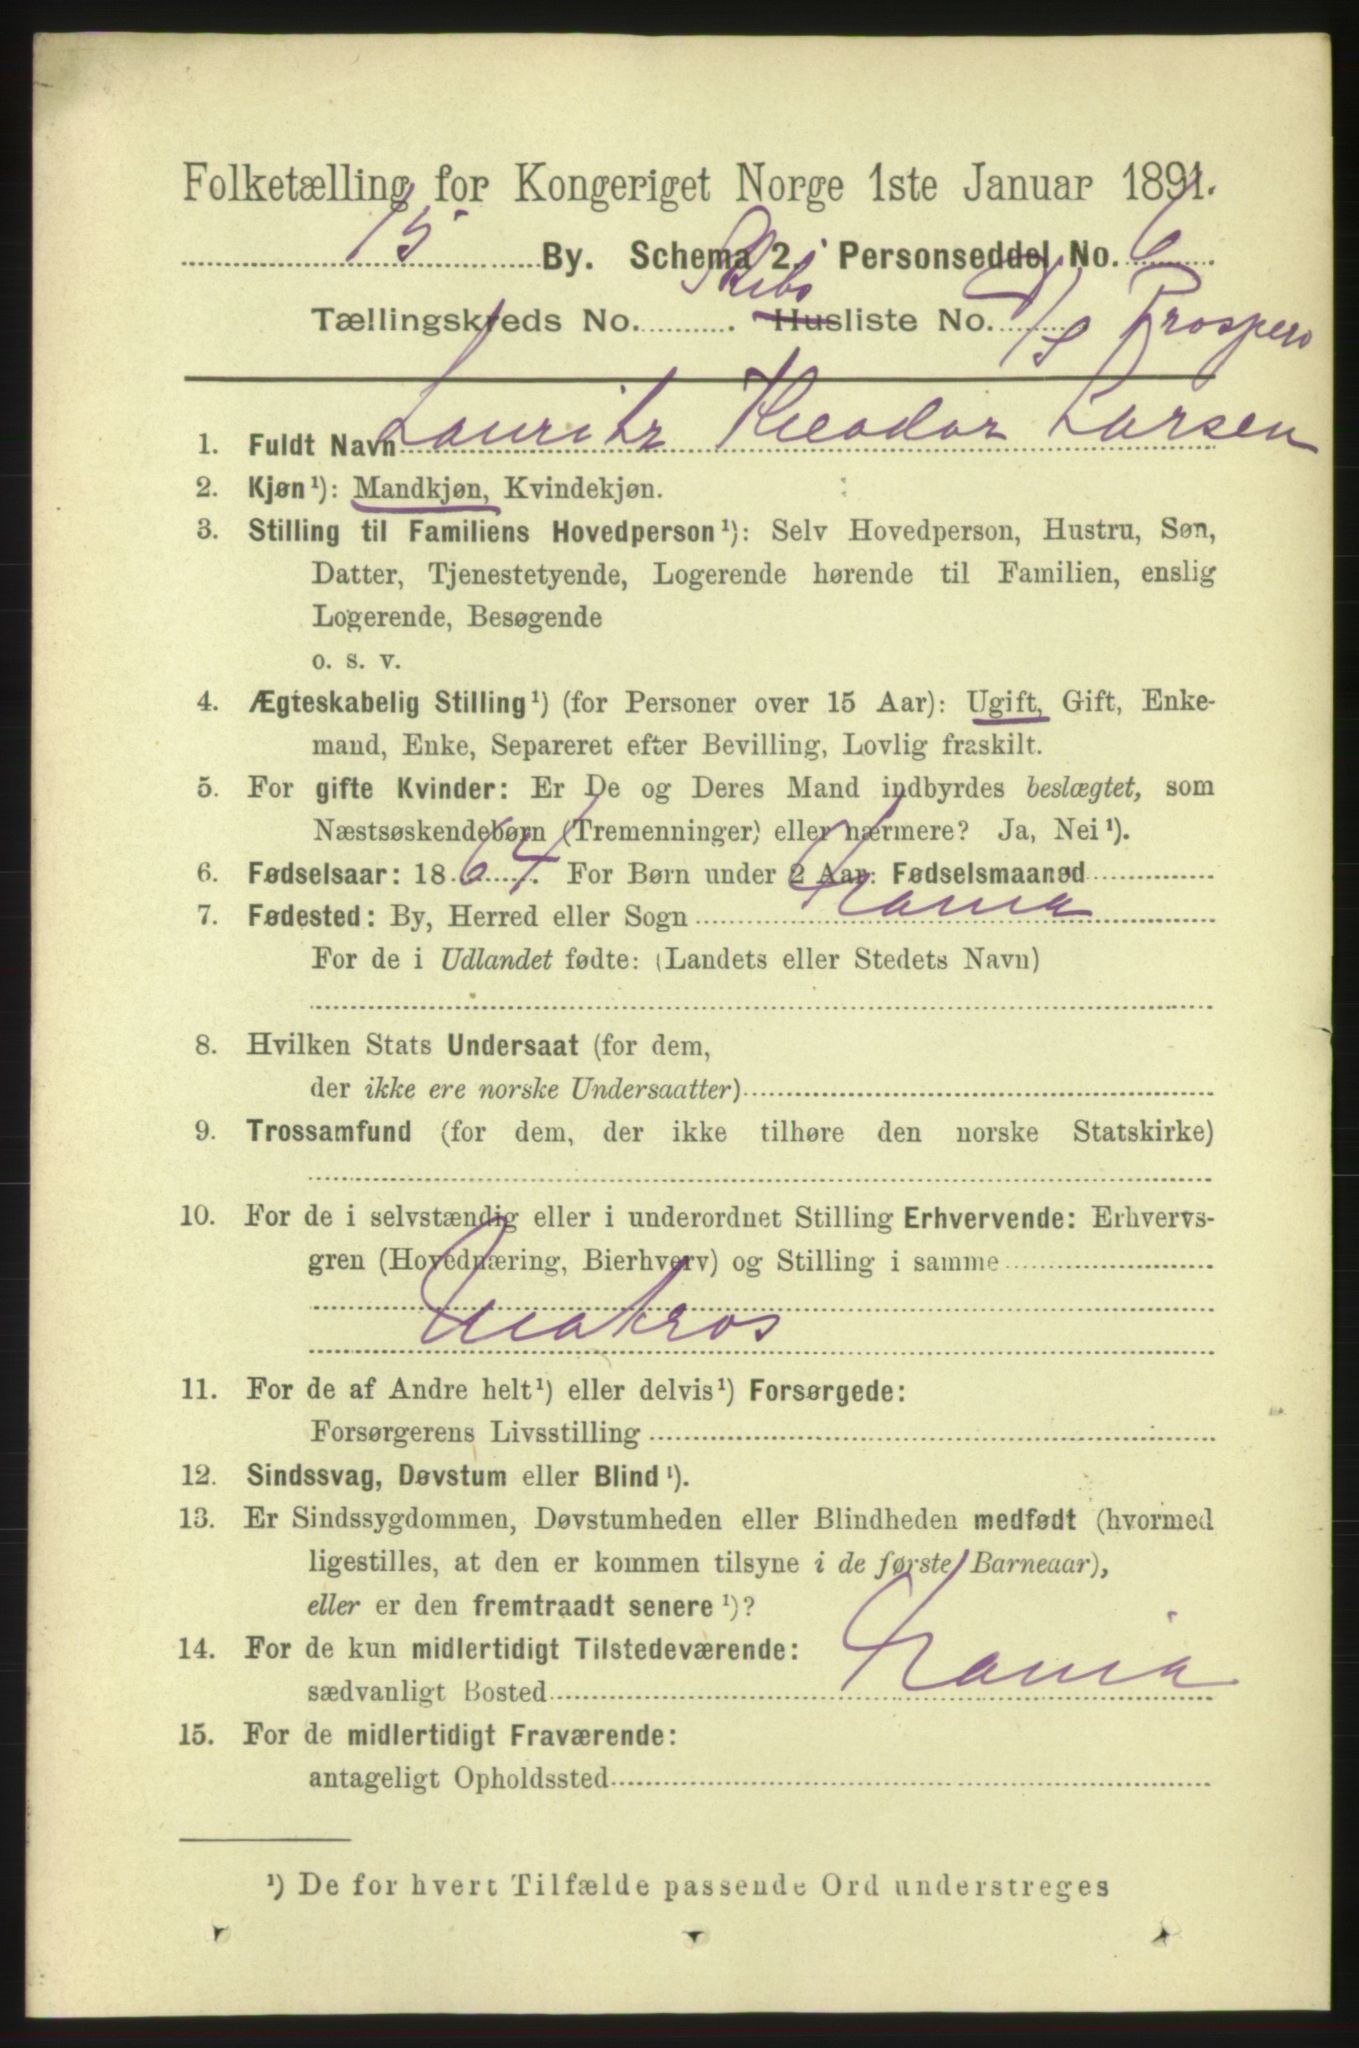 Folketælling for Kongeriget Norge 1ste Januar 1891.
15 By. Schema 2. Personseddel No. 6
Skibs
Tællingskreds No. Husliste No. D/S Prospero
1. Fuldt Navn Lauritz Theodor Larsen
2. Kjøn¹): Mandkjøn, Kvindekjøn.
3. Stilling til Familiens Hovedperson¹): Selv Hovedperson, Hustru, Søn,
Datter, Tjenestetyende, Logerende hørende til Familien, enslig
Logerende, Besøgende
o. s. v.
4. Ægteskabelig Stilling¹) (for Personer over 15 Aar): Ugift, Gift, Enke-
mand, Enke, Separeret efter Bevilling, Lovlig fraskilt.
5. For gifte Kvinder: Er De og Deres Mand indbyrdes beslægtet, som
Næstsøskendebørn (Tremenninger) eller nærmere? Ja, Nei¹).
6. Fødselsaar: 1864. For Børn under 2 Aar: Fødselsmaaned
7. Fødested: By, Herred eller Sogn Xania
For de i Udlandet fødte: (Landets eller Stedets Navn)
8. Hvilken Stats Undersaat (for dem,
der ikke ere norske Undersaatter)
9. Trossamfund (for dem, der ikke tilhøre den norske Statskirke)
10. For de i selvstændig eller i underordnet Stilling Erhvervende: Erhvervs-
gren (Hovednæring, Bierhverv) og Stilling i samme
Matros
11. For de af Andre helt¹) eller delvis¹) Forsørgede:
Forsørgerens Livsstilling
12. Sindssvag, Døvstum eller Blind¹).
13. Er Sindssygdommen, Døvstumheden eller Blindheden medfødt (hvormed
ligestilles, at den er kommen tilsyne i de første Barneaar),
eller er den fremtraadt senere¹)?
14. For de kun midlertidigt Tilstedeværende:
sædvanligt Bosted Xania
15. For de midlertidigt Fraværende:
antageligt Opholdssted
¹) De for hvert Tilfælde passende Ord understreges